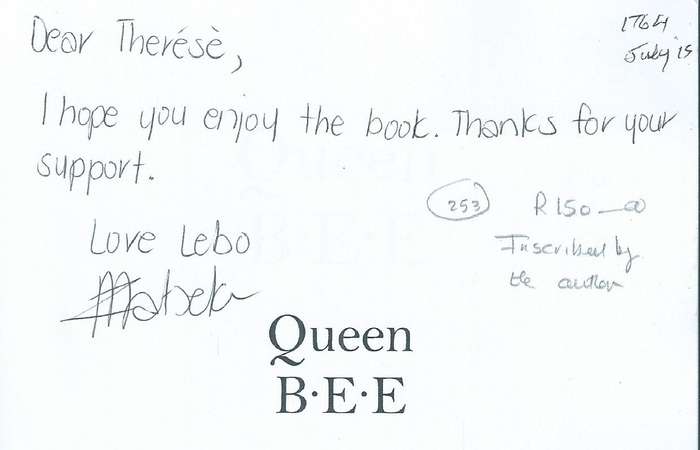 Dear Therésè,
1764
July 15
I hope you enjoy the book. Thanks for your
support.
253
R150—00
Love Lebo
Inscribed by
the author
Queen
B·E·E